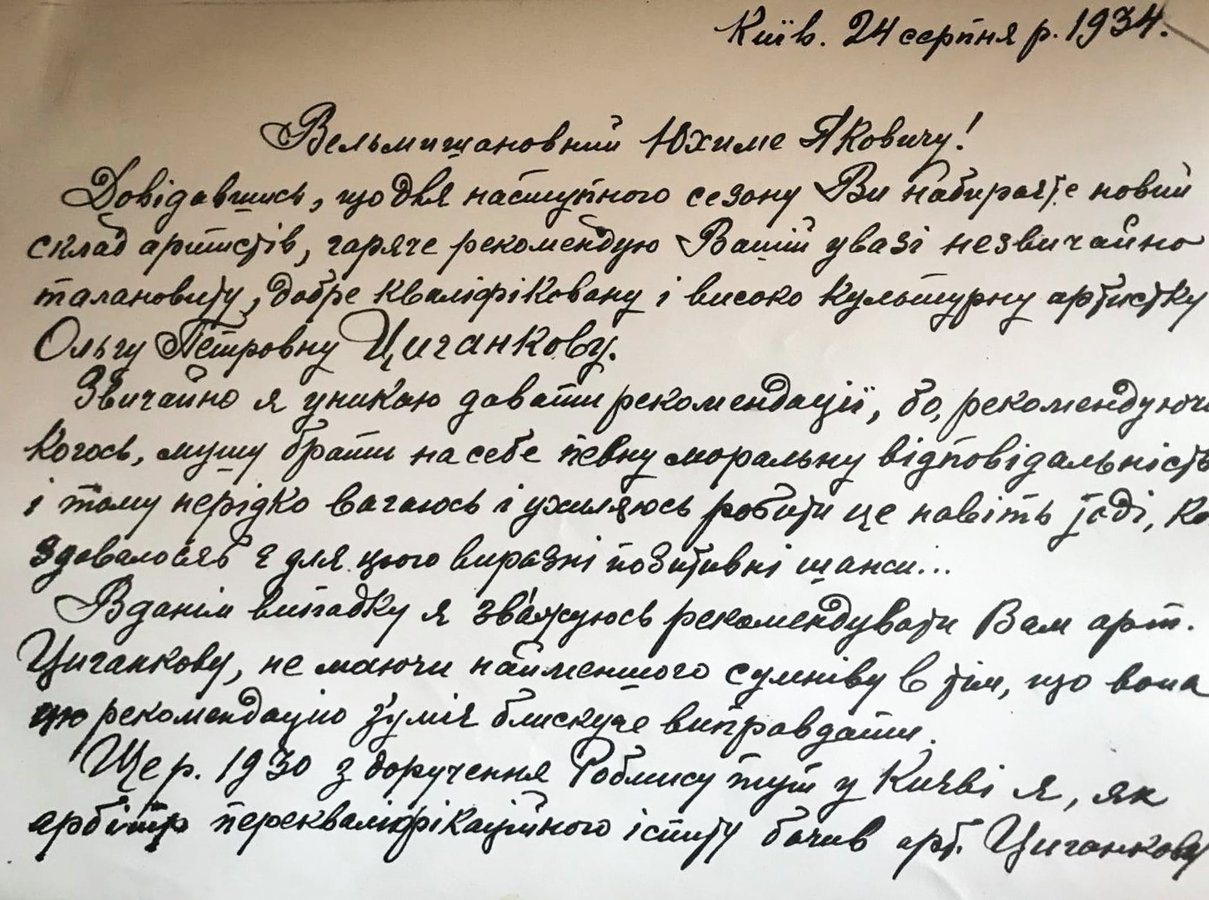 Київ. 24 серпня р. 1934.
Вельмишановний Юхиме Яковичу!
Довідавшись, що для наступного сезону Ви набираєте новий
склад артистів, гаряче рекомендую Вашій увазі незвичайно
талановиту, добре кваліфіковану і високо культурну артистку
Ольгу Петровну Циганкову.
Звичайно я уникаю давати рекомендації, бо, рекомендуючи
когось, мушу брати на себе певну моральну відповідальність
і тому нерідко вагаюсь і ухиляюсь робити це навіть тоді, ко
здавалося б є для цього виразні позитивні шанси...
В данім випадку я зважуюсь рекомендувати Вам арт.
Циганкову, не маючи найменшого сумніву в тім, що вона
цю рекомендацію зуміє блискуче виправдати.
Ще р. 1930 з доручення Робмису тут у Києві я, як
арбітр перекваліфікаційного іспиту бачив арт. Циганкову